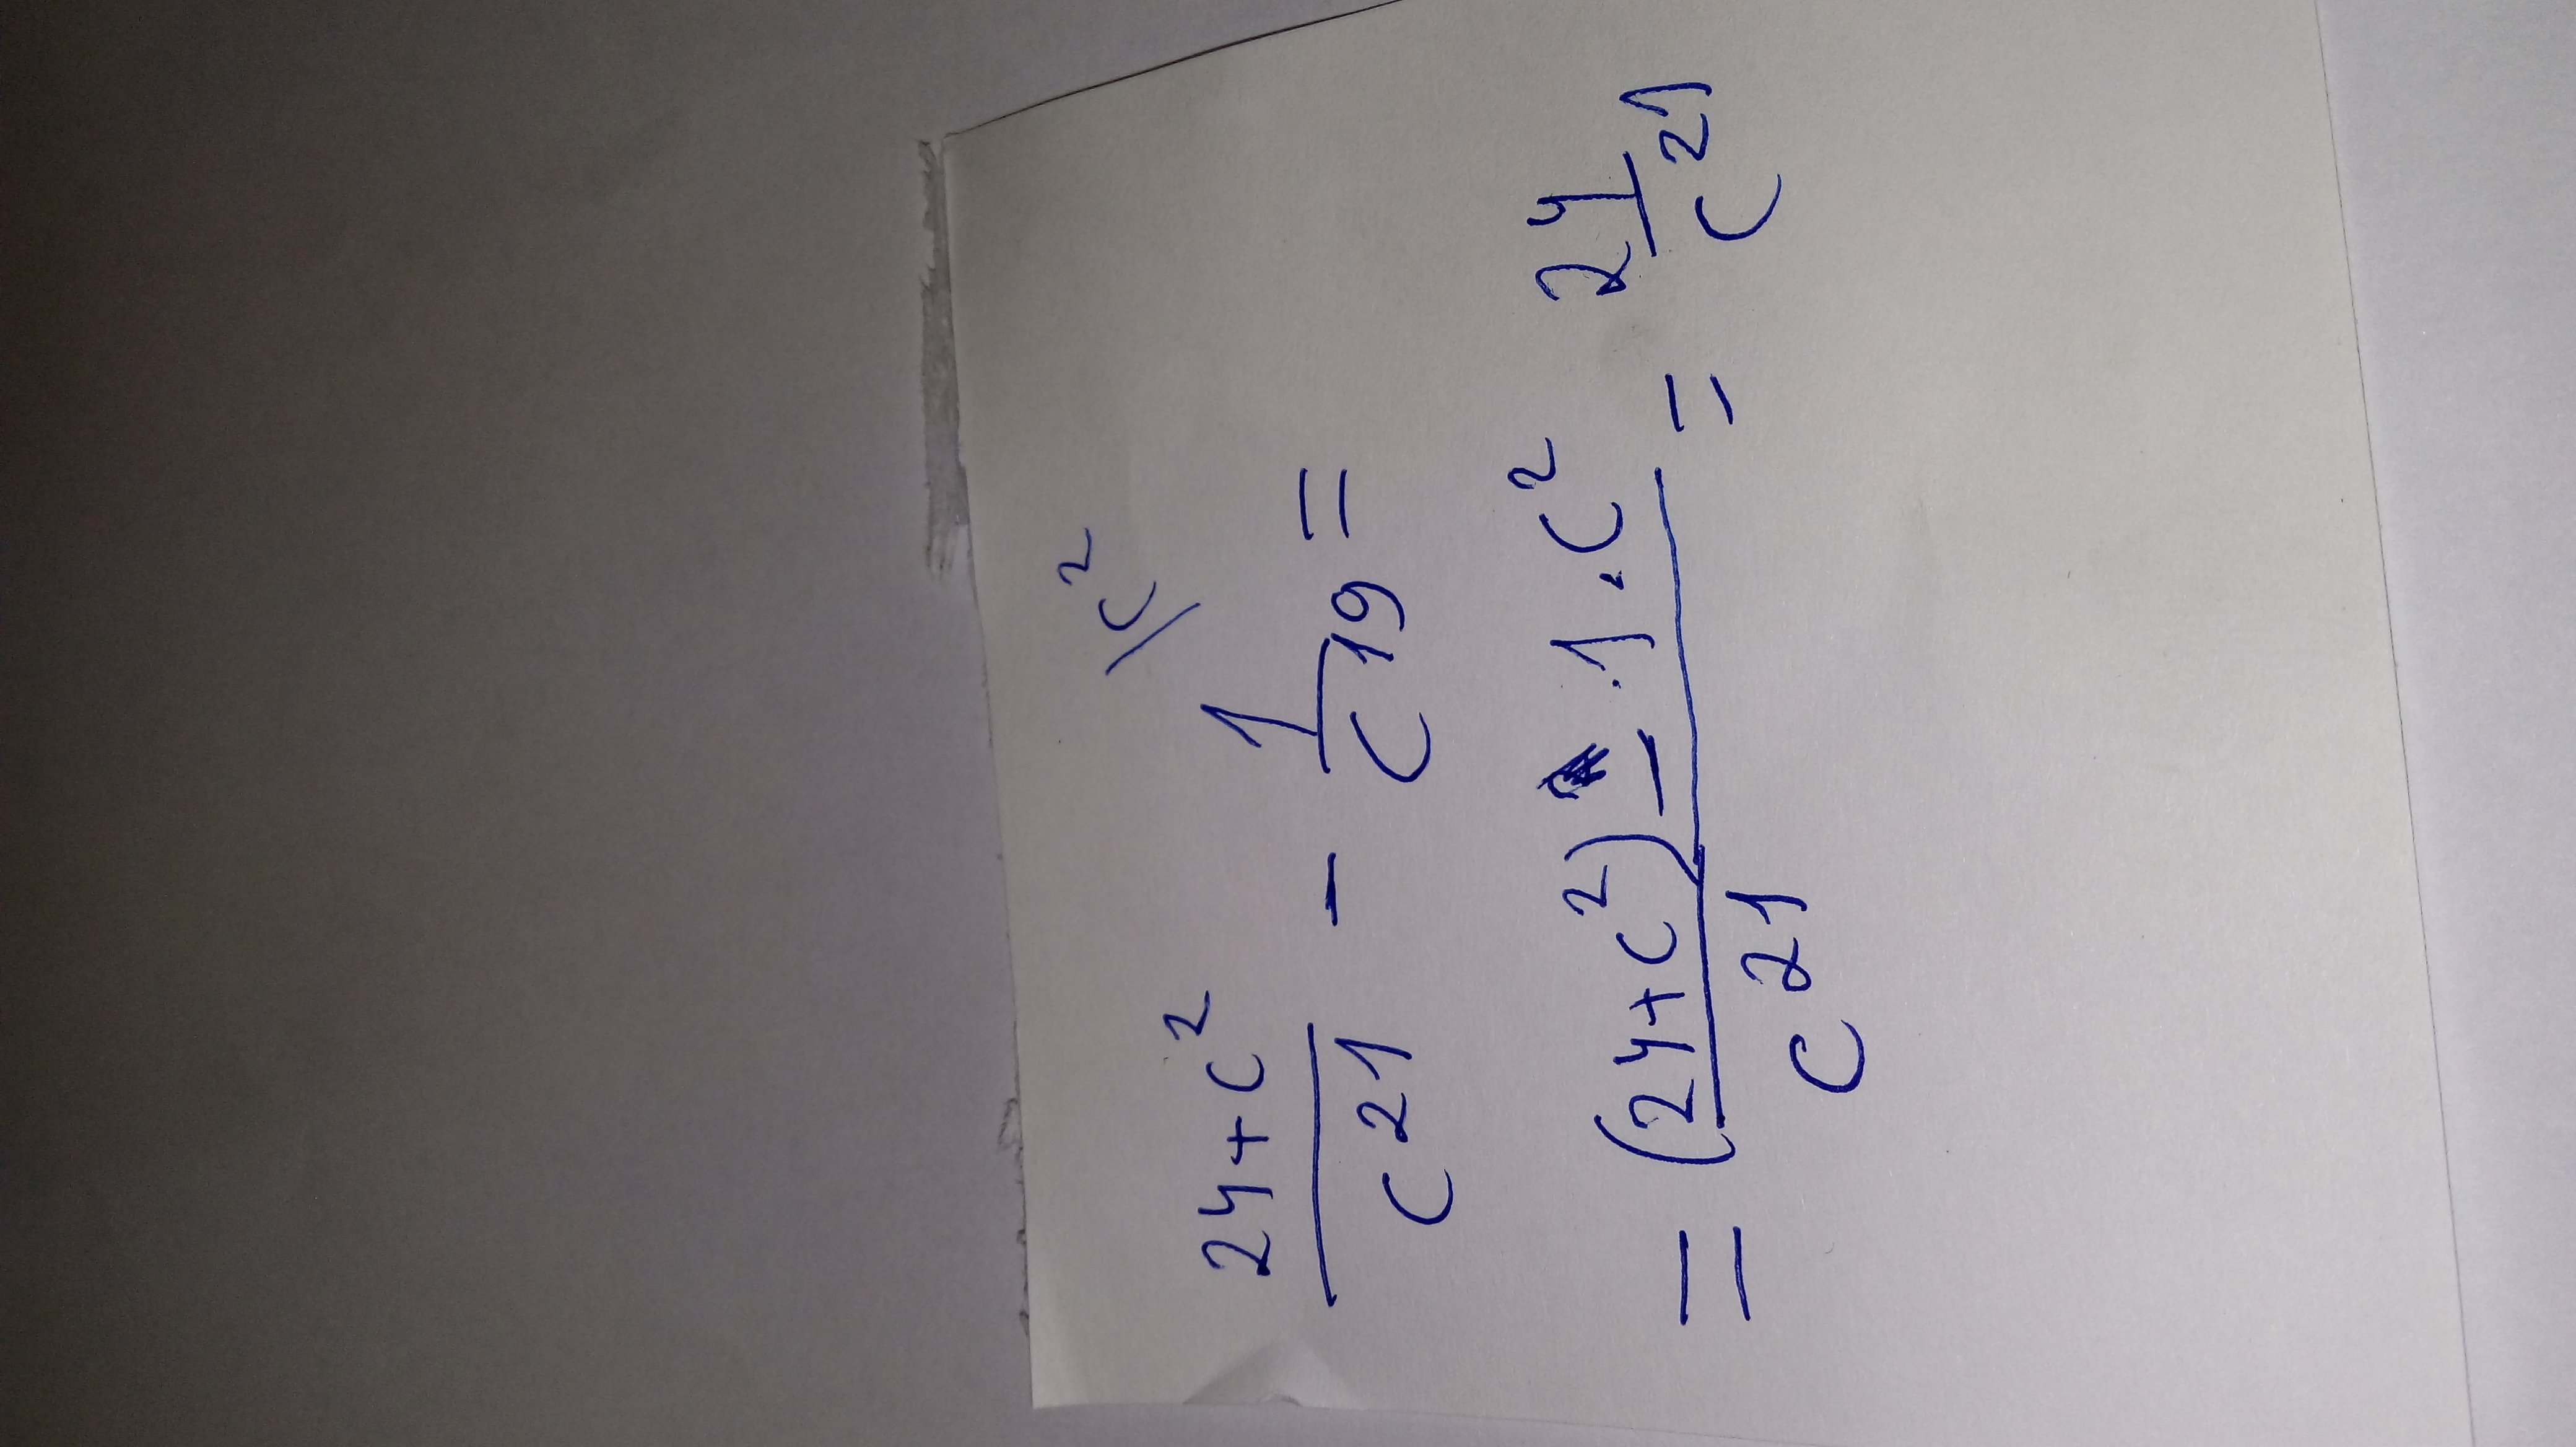 \c²
(24+c²)/c²¹ - 1/c¹⁹ =
= ((24+c²) - 1·c²)/c²¹ = 24/c²¹